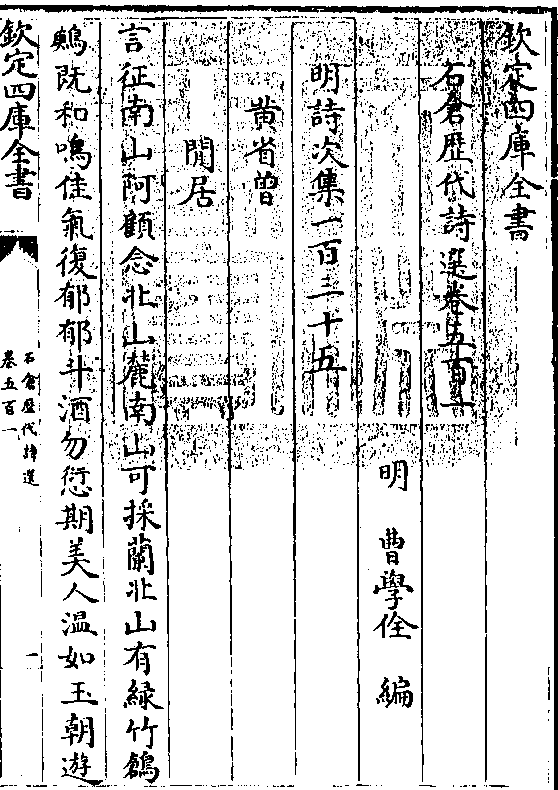 欽定四庫全書
石倉歷代詩選卷五百一
明 曹學佺 編
明詩次集一百三十五
黄省曾
閒居
言征南山阿顧念北山麓南山可採蘭北山有緑竹鶬
鶊既和鳴佳氣復郁郁斗酒勿愆期美人温如玉朝遊
欽定四庫全書
石倉歷代詩選
卷五百一
一